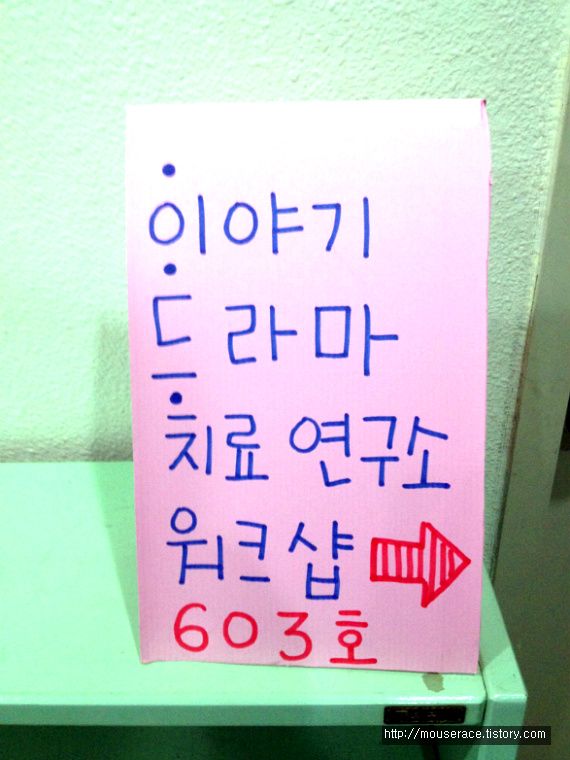 이야기
드라마
치료 연구소
워크샵
603호
http://mouserace.tistory.com